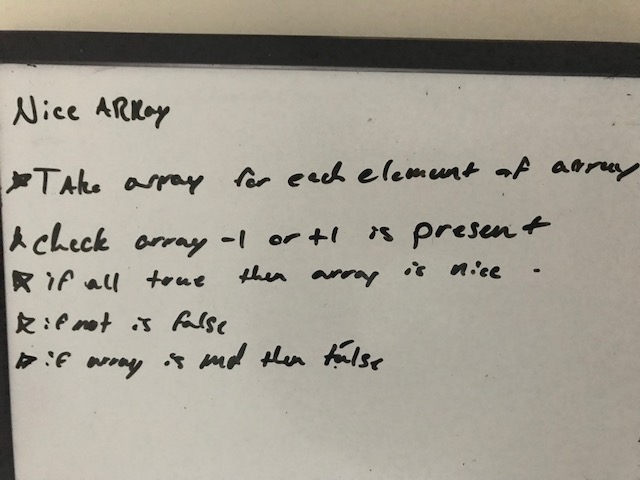 Nice ARRay
* Take array for each element of array
* check array -1 or +1 is present
* if all true then array is nice.
* if not is false
* if array is then false